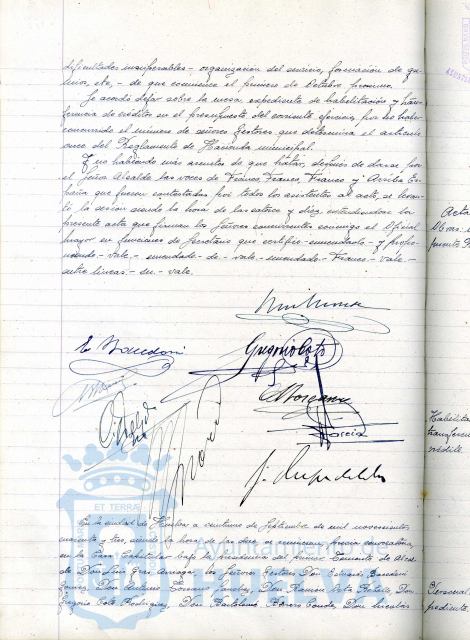 dificultades insuperables - organización del servicio, formación de gremios, etc, - de que comience el primero de Octubre próximo.
Se acordó dejar sobre la mesa expediente de habilitación y trans-
ferencia de créditos en el presupuesto del corriente ejercicio, por no haber
concurrido el número de señores Gestores que determina el artículo
once del Reglamento de Hacienda municipal.
Y no habiendo más asuntos de que tratar, después de darse por
el Señor Alcalde las voces de Franco, Franco, Franco y Arriba Es-
paña que fueron contestadas por todos los asistentes al acto, se levan-
tó la sesión siendo la hora de las catorce y diez, extendiéndose la
presente acta que firman los Señores concurrentes conmigo el Oficial
mayor en funciones de Secretario que certifico = enmendado = y
vale = enmendado = de = vale = enmendado = Franco = vale =
entre líneas = su = vale.
Acta
Obras
Gregorio Coto
García
Habilita
transferen
crédito
ET TERRÆ
Ayuntamiento
En la ciudad de Huelva a de Septiembre de mil novecientos
cuarenta y tres, siendo la hora de las diez, se reunieron, previa convocatoria,
en la Casa Capitular bajo la presidencia del primer Teniente de Alcal-
de Don Luis Arriaga, los Señores Gestores Don
Don Antonio Sánchez, Don Ramón Don
Gregorio Coto Rodríguez, Don Bartolomé Don Nicolás
Personal